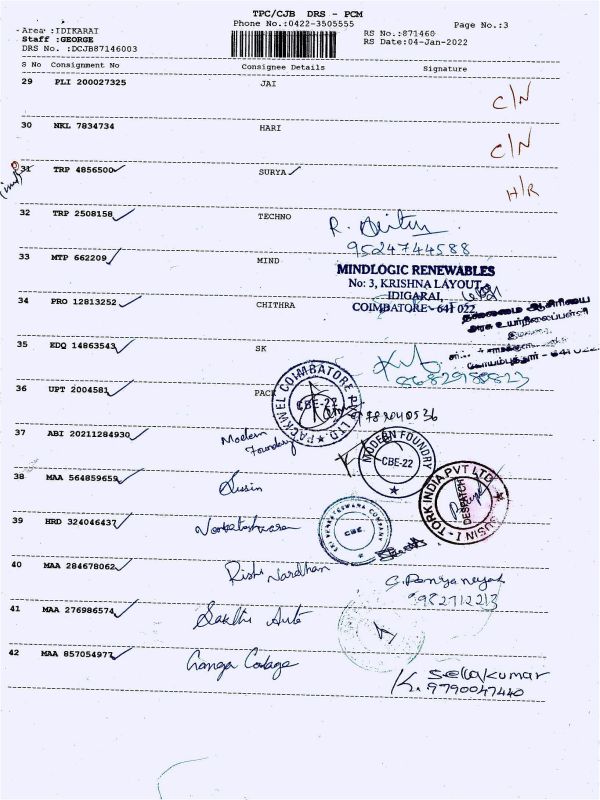 TPC/CJB DRS - PCM
Phone No.:0422-3505555
Page No.:3
Area :IDIKARAI
Staff :GEORGE
DRS No. :DCJB87146003
RS No.:871460
RS Date:04-Jan-2022
S No Consignment No Consignee Details Signature
29 PLI 200027325 JAI C/N
30 NKL 7834734 HARI C/N
31 TRP 4856500 SURYA H/R
32 TRP 2508158 TECHNO R.
9524744588
33 MTP 662209 MIND
MINDLOGIC RENEWABLES
No: 3, KRISHNA LAYOUT,
IDIGARAI,
COIMBATORE - 641 022
34 PRO 12813252 CHITHRA
தலைமை ஆசிரியை
அரசு உயர்நிலைப்பள்ளி
35 EDQ 14863543 SK
36 UPT 2004581 PACK
PACKWEL COIMBATORE P LTD
CBE-22
37 ABI 20211284930 Modern
Foundry
MODERN FOUNDRY
CBE-22
38 MAA 564859659 Susin
SUSIN I - TORK INDIA PVT LTD
DESPATCH
39 HRD 324046437
CBE.
40 MAA 284678062 Rishi Vardhan
41 MAA 276986574 Sakthi Auto
42 MAA 857054977 Ganga
K. Sellakumar
9790047440